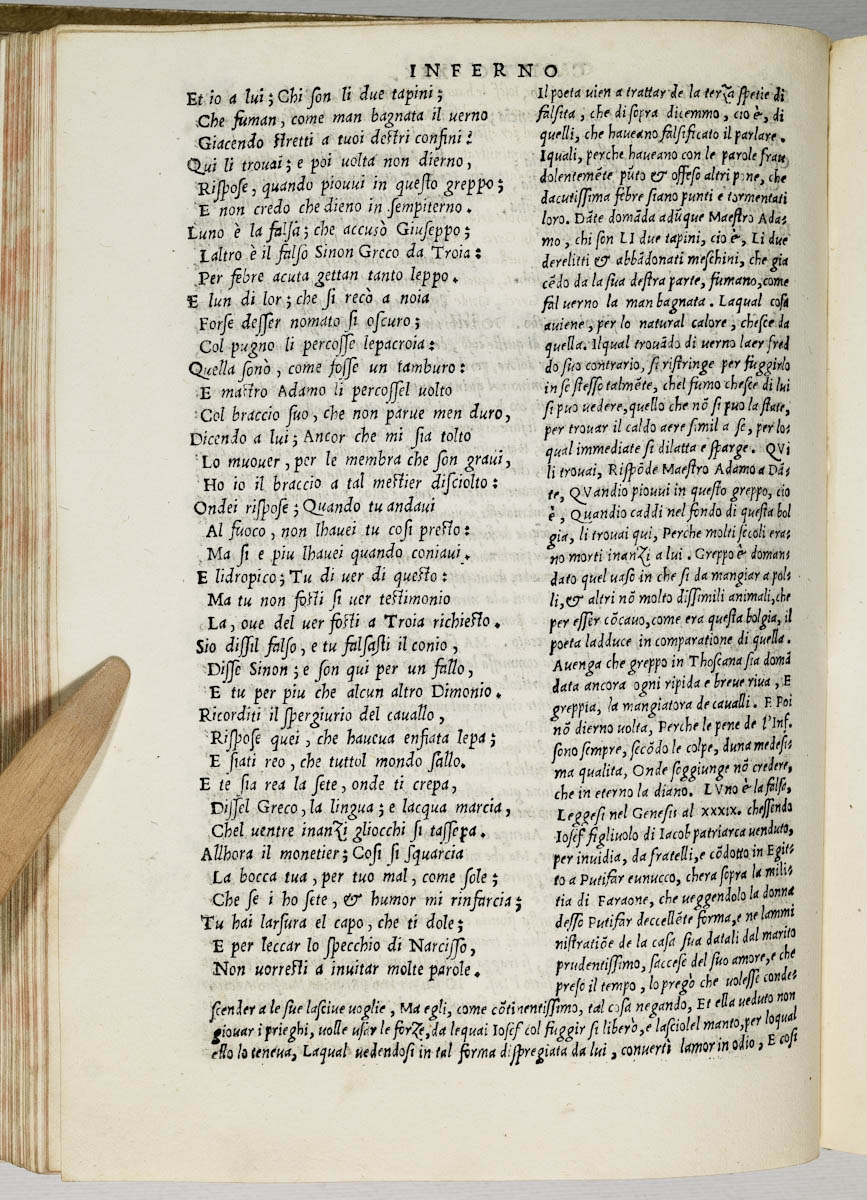 INFERNO
Et io a lui; Chi ſon li due tapini;
Che fuman, come man bagnata il uerno
Giacendo ſtretti a tuoi deſtri confini?
Qui li trouai; e poi uolta non dierno,
Riſpoſe, quando piouui in queſto greppo;
E non credo che dieno in ſempiterno.
Luno è la falſa; che accusò Giuſeppo;
Laltro è il falſo Sinon Greco da Troia:
Per febre acuta gettan tanto leppo.
E lun di lor; che ſi recò a noia
Forſe deſſer nomato ſi oſcuro;
Col pugno li percoſſe lepacroia:
Quella ſonò, come foſſe un tamburo:
E maſtro Adamo li percoſſel uolto
Col braccio ſuo, che non parue men duro,
Dicendo a lui; Ancor che mi ſia tolto
Lo muouer, per le membra che ſon graui,
Ho io il braccio a tal meſtier diſciolto:
Ondei riſpoſe; Quando tu andaui
Al fuoco, non lhauei tu coſi preſto:
Ma ſi e piu lhauei quando coniaui.
E lidropico; Tu di uer di queſto:
Ma tu non foſti ſi uer teſtimonio
La, oue del uer foſti a Troia richieſto.
Sio diſſil falſo, e tu falſaſti il conio,
Diſſe Sinon; e ſon qui per un fallo,
E tu per piu che alcun altro Dimonio.
Ricorditi il ſpergiurio del cauallo,
Riſpoſe quei, che haueua enfiata lepa;
E ſiati reo, che tuttol mondo ſallo.
E te ſia rea la ſete, onde ti crepa,
Diſſel Greco, la lingua; e lacqua marcia,
Chel uentre inanzi gliocchi ſi taſſepa.
Allhora il monetier; Coſi ſi ſquarcia
La bocca tua, per tuo mal, come ſole;
Che ſe i ho ſete, & humor mi rinfarcia;
Tu hai larſura el capo, che ti dole;
E per leccar lo ſpecchio di Narciſſo,
Non uorreſti a inuitar molte parole.
Il poeta uien a trattar de la terza ſpetie di
falſita, che diſopra dicemmo, cio è, di
quelli, che haueano falſificato il parlare.
Iquali, perche haueano con le parole frau
dolentemẽte pũto & offeſo altri pone, che
dacutiſſima febre ſiano punti e tormentati
loro. Dãte domãda adũque Maeſtro Ada-
mo, chi ſon LI due tapini, cio è, Li due
derelitti & abbãdonati meſchini, che gia
cẽdo da la ſua deſtra parte, fumano, come
fal uerno la man bagnata. Laqual coſa
auiene, per lo natural calore, cheſce da
quella. Ilqual trouãdo di uerno laer fred
do ſuo contrario, ſi riſtringe per fuggirlo
in ſe ſteſſo talmẽte, chel fumo cheſce di lui
ſi puo uedere, quello che nõ ſi puo la ſtate,
per trouar il caldo aere ſimil a ſe, per lo-
qual immediate ſi dilatta e ſparge. QVi
li trouai, Riſpõde Maeſtro Adamo a Dã-
te, QVandio piouui in queſto greppo, cio
è, Quandio caddi nel fondo di queſta bol
gia, li trouai qui, Perche molti ſecoli era-
no morti inanzi a lui. Greppo è doman-
dato quel uaſo in che ſi da mangiar a pol-
li, & altri nõ molto diſſimili animali, che
per eſſer cõcauo, come era queſta bolgia, il
poeta ladduce in comparatione di quella.
Auenga che greppo in Thoſcana ſia domã
data ancora ogni ripida e breue riua, E
greppia, la mangiatora de caualli. E Poi
nõ dierno uolta, Perche le pene de l'Inf.
ſono ſempre, ſecõdo le colpe, duna medeſi-
ma qualita, Onde ſoggiunge nõ credere,
che in eterno la diano. LVno è la falſa,
Leggeſi nel Geneſis al xxxix. cheſſendo
Ioſef figliuolo di Iacob patriarca uenduto,
per inuidia, da fratelli, e cõdotto in Egit-
to a Putifar eunucco, chera ſopra la mili-
tia di Faraone, che ueggendolo la donna
deſſo Putifar deccellẽte forma, e ne lammi
niſtratiõe de la caſa ſua datali dal marito
prudentiſſimo, ſacceſe del ſuo amore, e che
preſo il tempo, lo pregò che uoleſſe conde-
ſcender a le ſue laſciue uoglie, Ma egli, come cõtinentiſſimo, tal coſa negando, Et ella ueduto non
giouar i prieghi, uolle uſar le forze, da lequai Ioſef col fuggir ſi liberò, e laſciolel manto, per loqual
eſſo lo teneua, Laqual uedendoſi in tal forma diſpregiata da lui, conuertì lamor in odio, E coſi